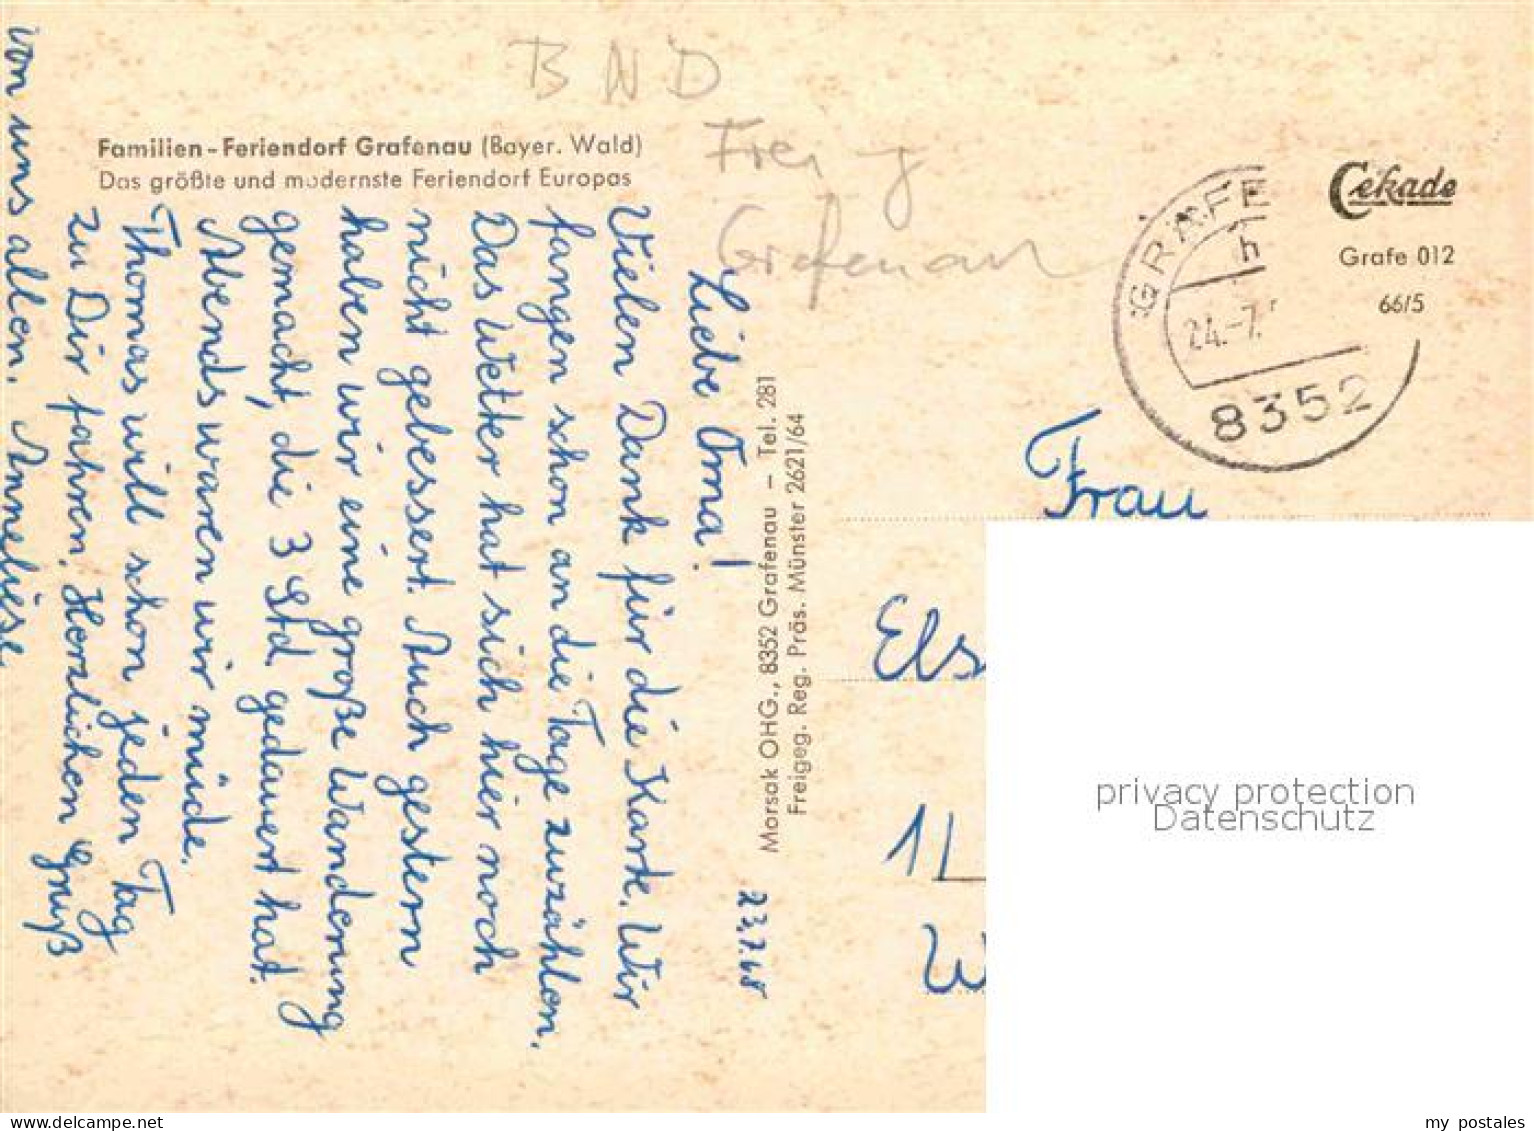 BND
Frey
Grafenau
Familien-Feriendorf Grafenau (Bayer. Wald)
Das größte und modernste Feriendorf Europas
Cekade
Grafe 012
66/5
GRAFE
h
24.-7.
8352
23.7.68
Liebe Oma!
Vielen Dank für die Karte. Wir
fangen schon an die Tage zuzählen.
Das Wetter hat sich hier noch
nicht gebessert. Auch gestern
haben wir eine große Wanderung
gemacht, die 3 Std. gedauert hat.
Abends waren wir müde.
Thomas will schon jeden Tag
zu Dir fahren. Herzlichen Gruß
von uns allen. Anneliese.
Morsak OHG., 8352 Grafenau – Tel. 281
Freigeg. Reg. Präs. Münster 2621/64
Frau
Els
1L
W
privacy protection
Datenschutz
my postales